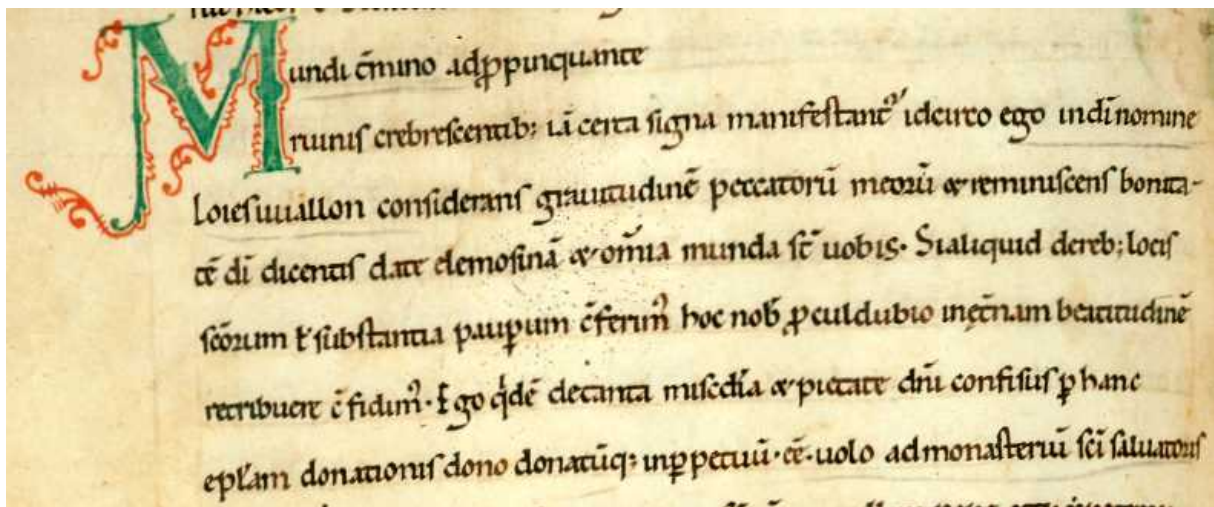 Mundi t̄mino adp̱pinquante
ruinis crebrescentib; iā certa signa manifestant᷑ idcirco ego indīnomine
Loiesuuallon considerans grauitudinē peccatorū meorū & reminiscens bonita-
tē dī dicentis date elemosinā & om̄ia munda st̄ uobis. Sialiquid dereb; locis
sc̄orum ł substantia paup̱um c̄ferim᷒ hoc nob̄ ꝓculdubio inęt̄nam beatitudinē
retribuere c̄fidim᷒. Ego qͥdē detanta mis̄cdīa & pietate dn̄i confisus p̱ hanc
epł̄am donationis dono donatūq; inp̱petuū. eē. uolo admonasteriū sc̄i saluatoris